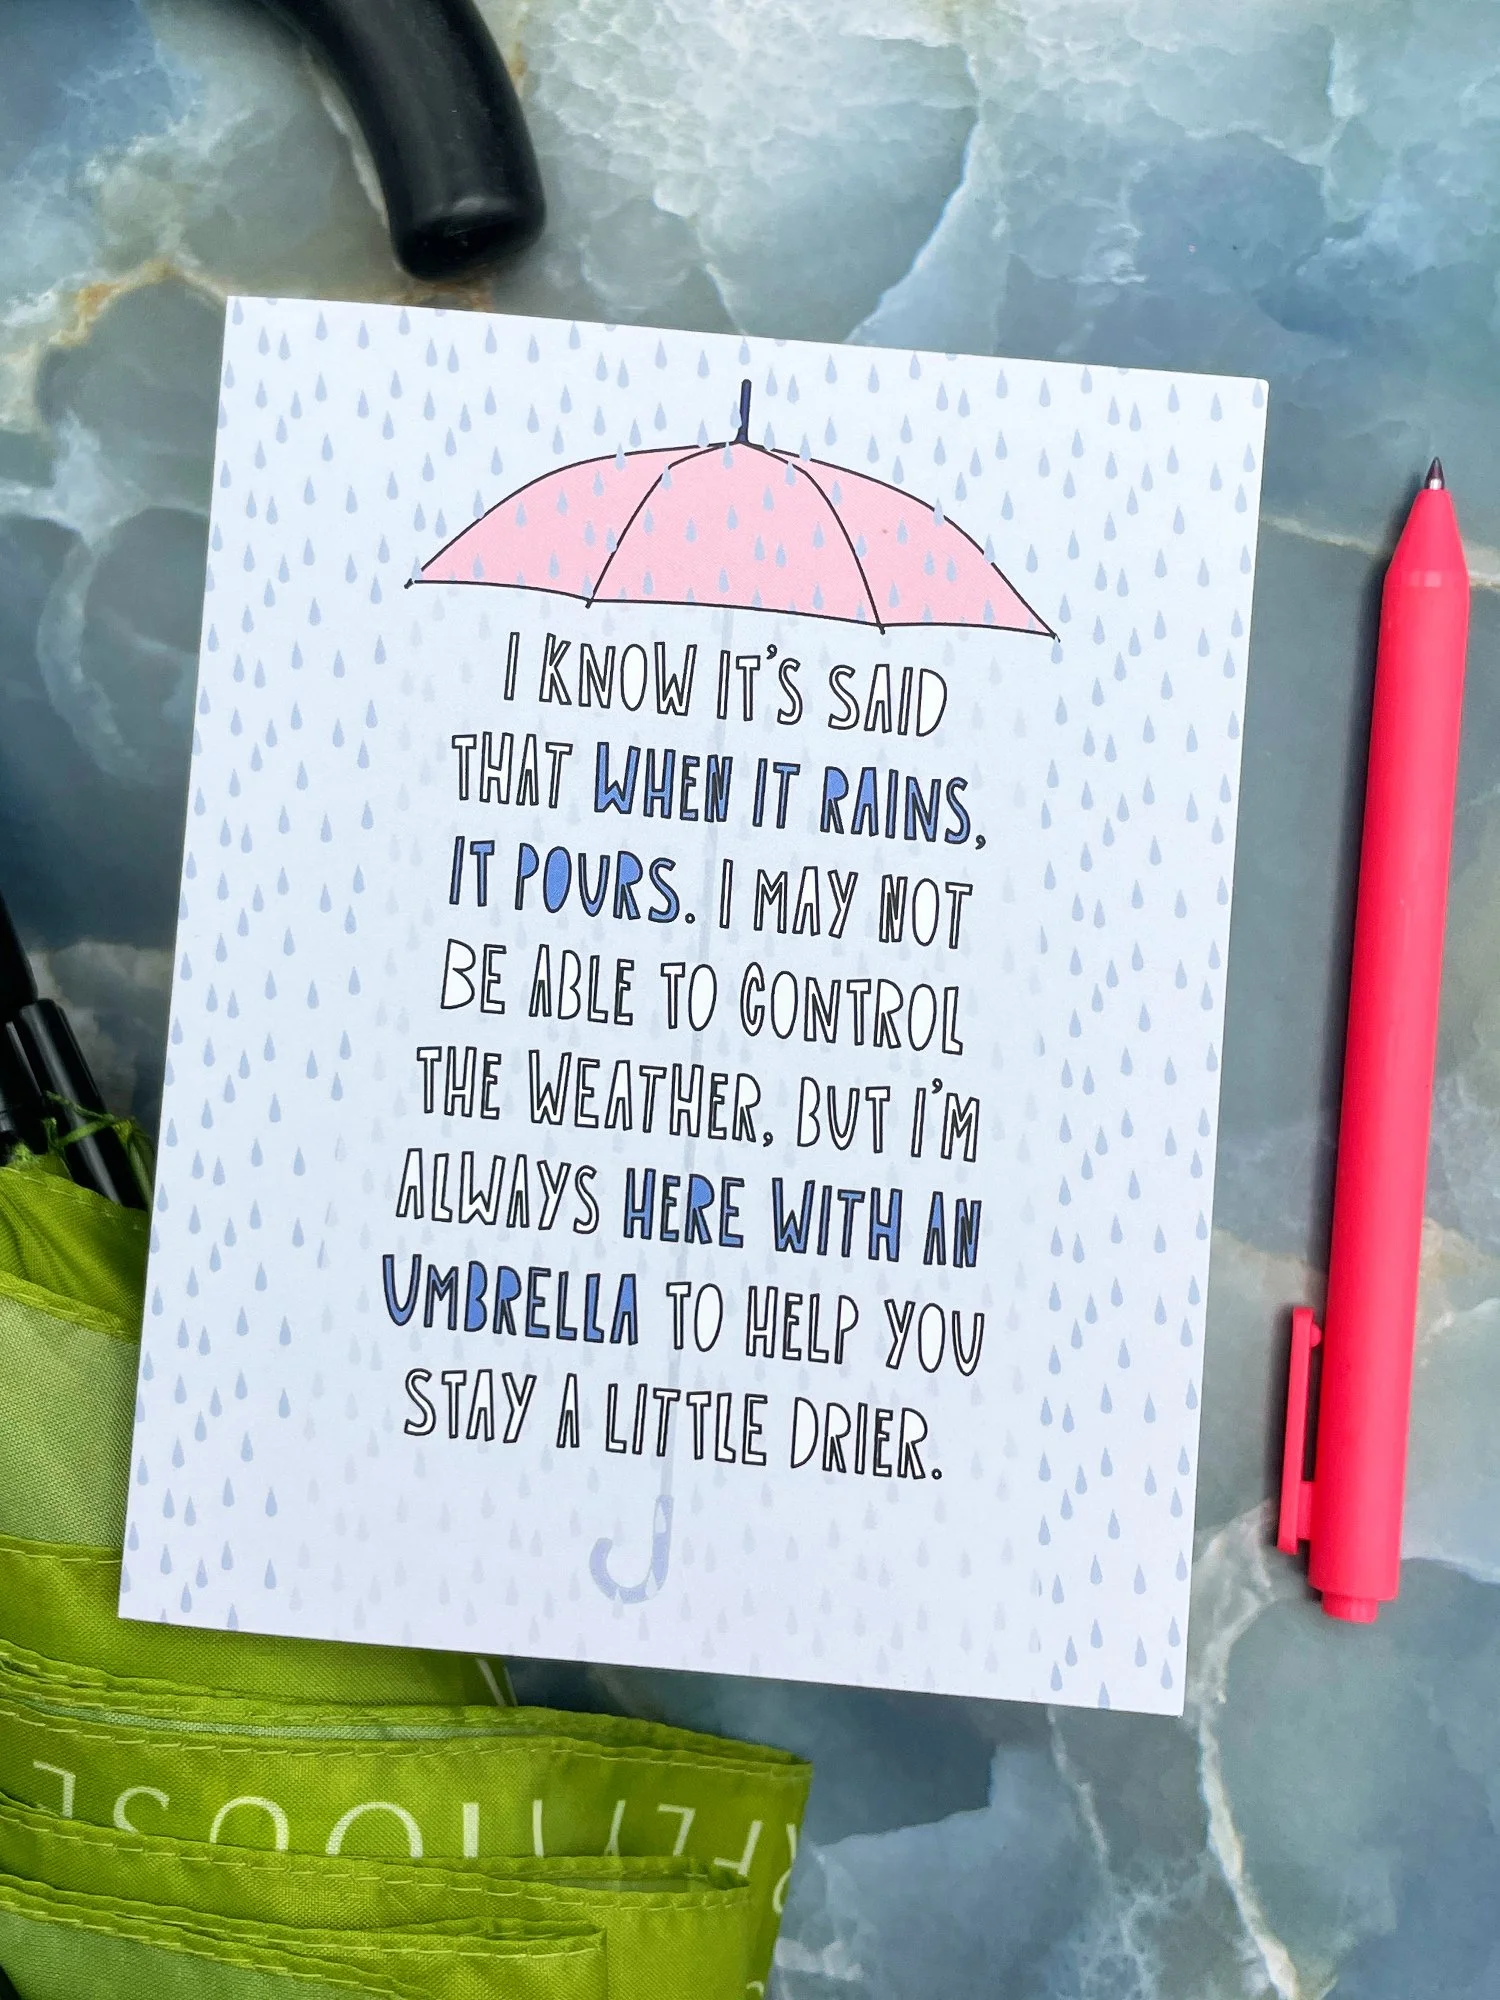 I KNOW IT'S SAID
THAT WHEN IT RAINS,
IT POURS. I MAY NOT
BE ABLE TO CONTROL
THE WEATHER, BUT I'M
ALWAYS HERE WITH AN
UMBRELLA TO HELP YOU
STAY A LITTLE DRIER.